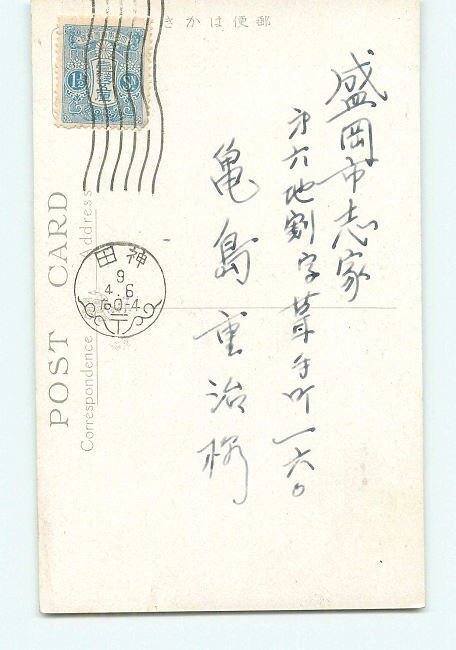 郵便はかき
盛岡市志家
第六地割字茸手町一六〇
亀島重治様
POST CARD
Correspondence
Address
1½
SN
神田
9
4.6